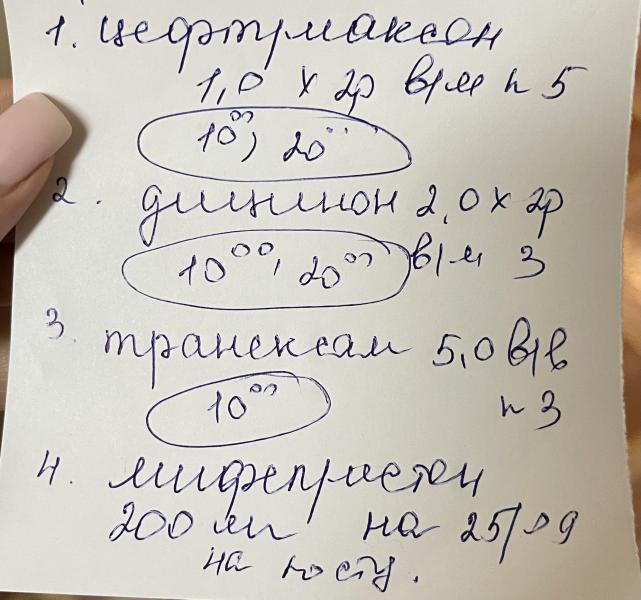 1. цефтриаксон
1,0 х 2р в/м n 5
10⁰⁰, 20⁰⁰
2. дицинон 2,0 х 2р
10⁰⁰, 20⁰⁰ в/м 3
3. транексам 5,0 в/в
10⁰⁰ n 3
4. мифепристон
200 мг на 25/09
на посту.